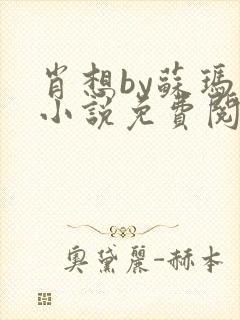 肖想by蘇瑪
小說免費閱
奧黛麗-赫本